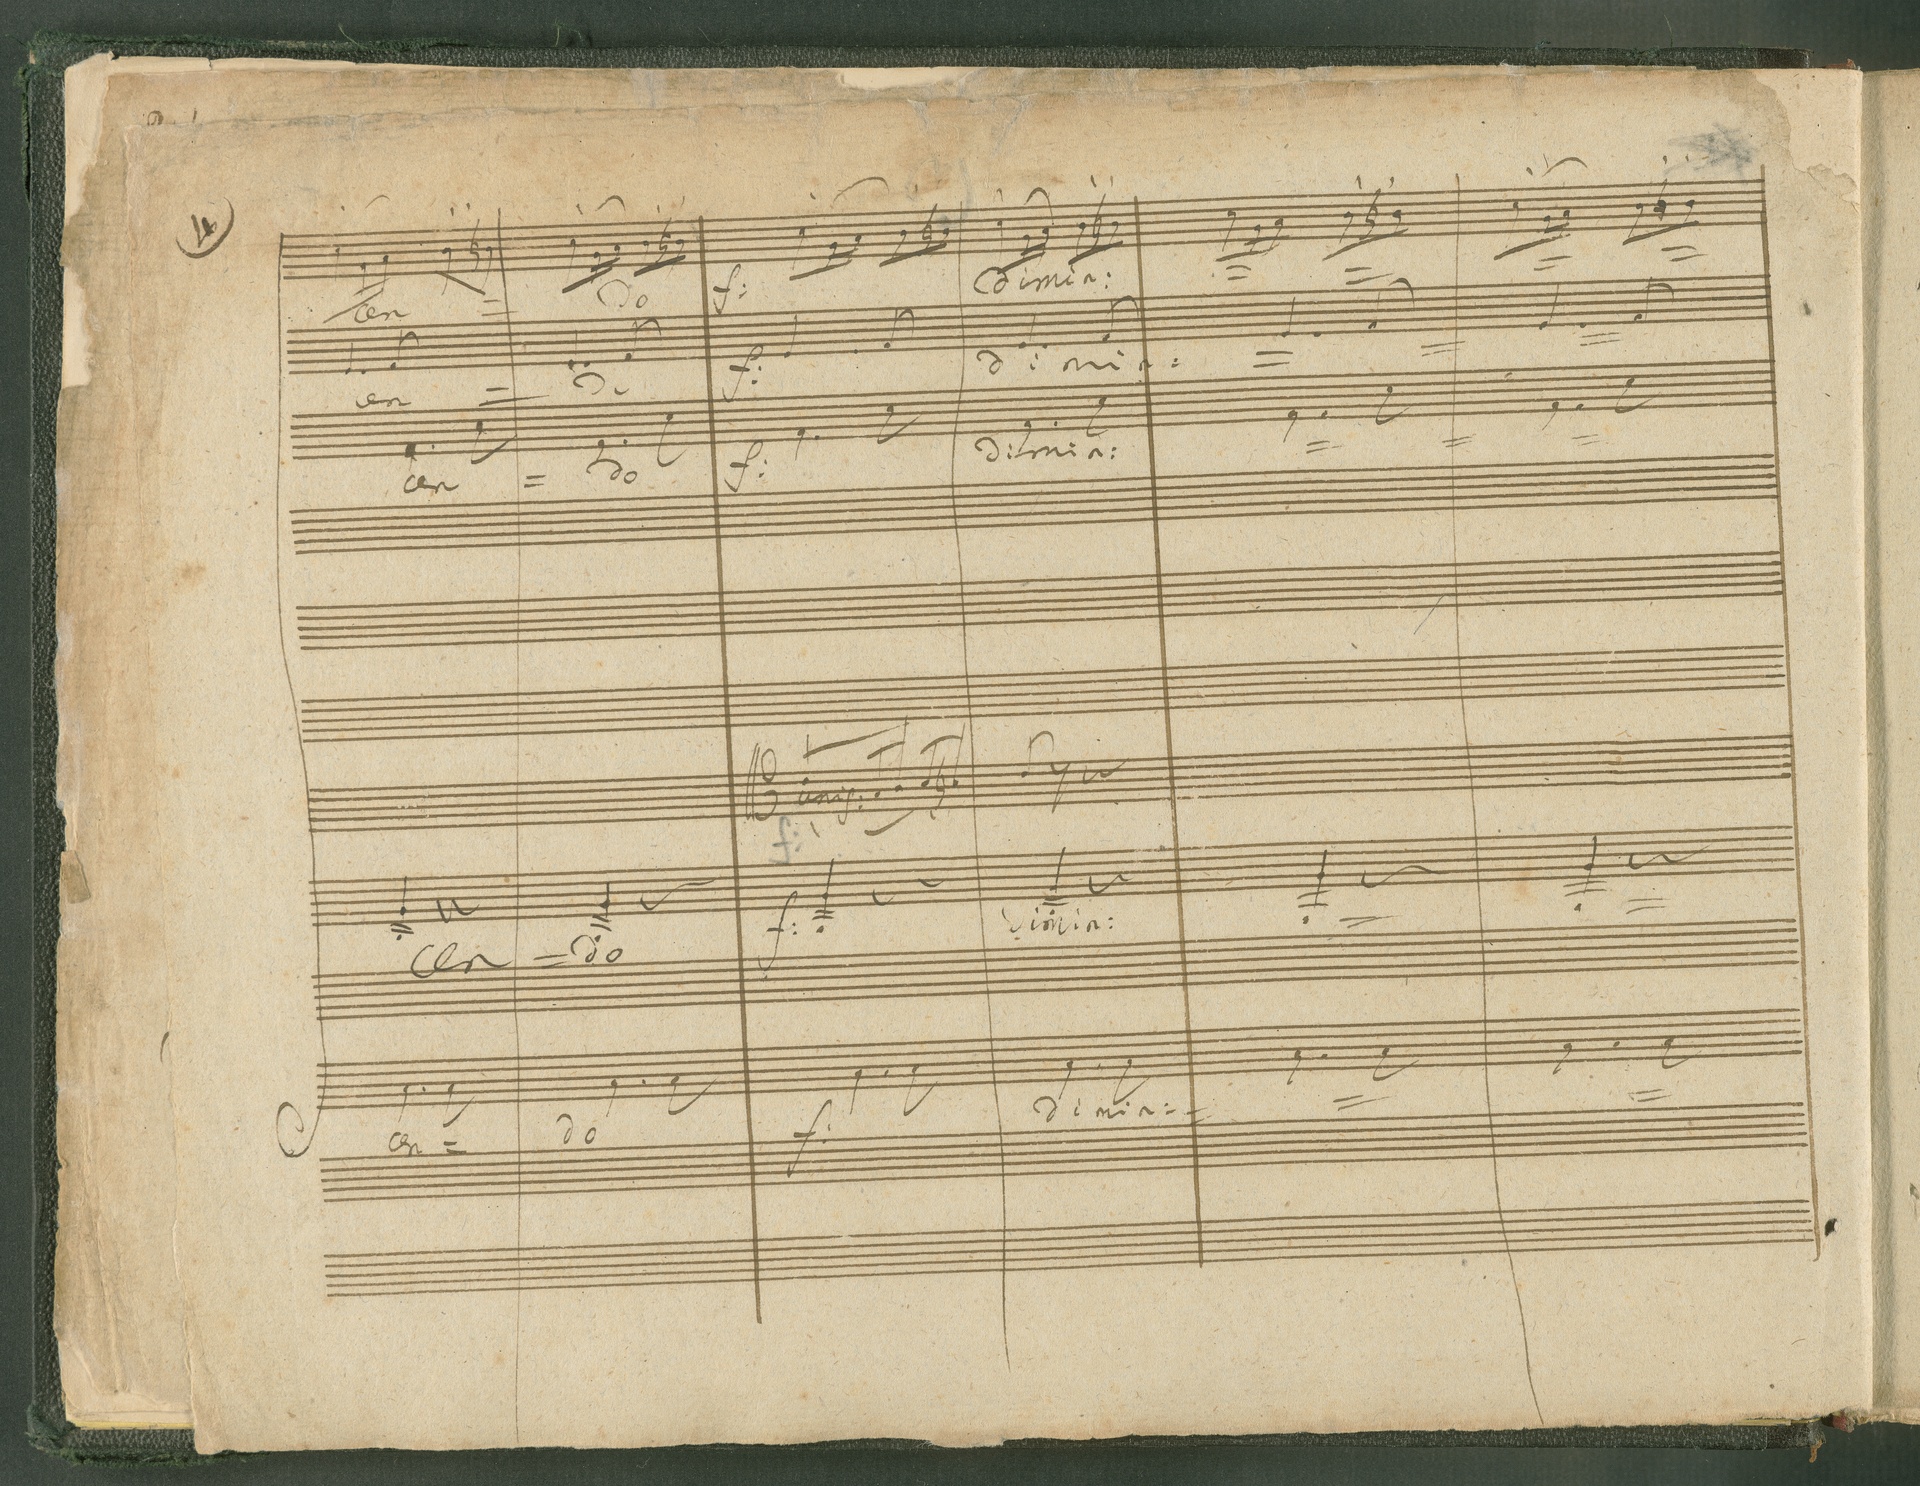 4
cen = do f: dimin: = = = =
cen = do f: dimin: = = =
cen = do f: dimin: = = =
unis:
f:
cen = do f: dimin: = =
cen = do f: dimin: = = =